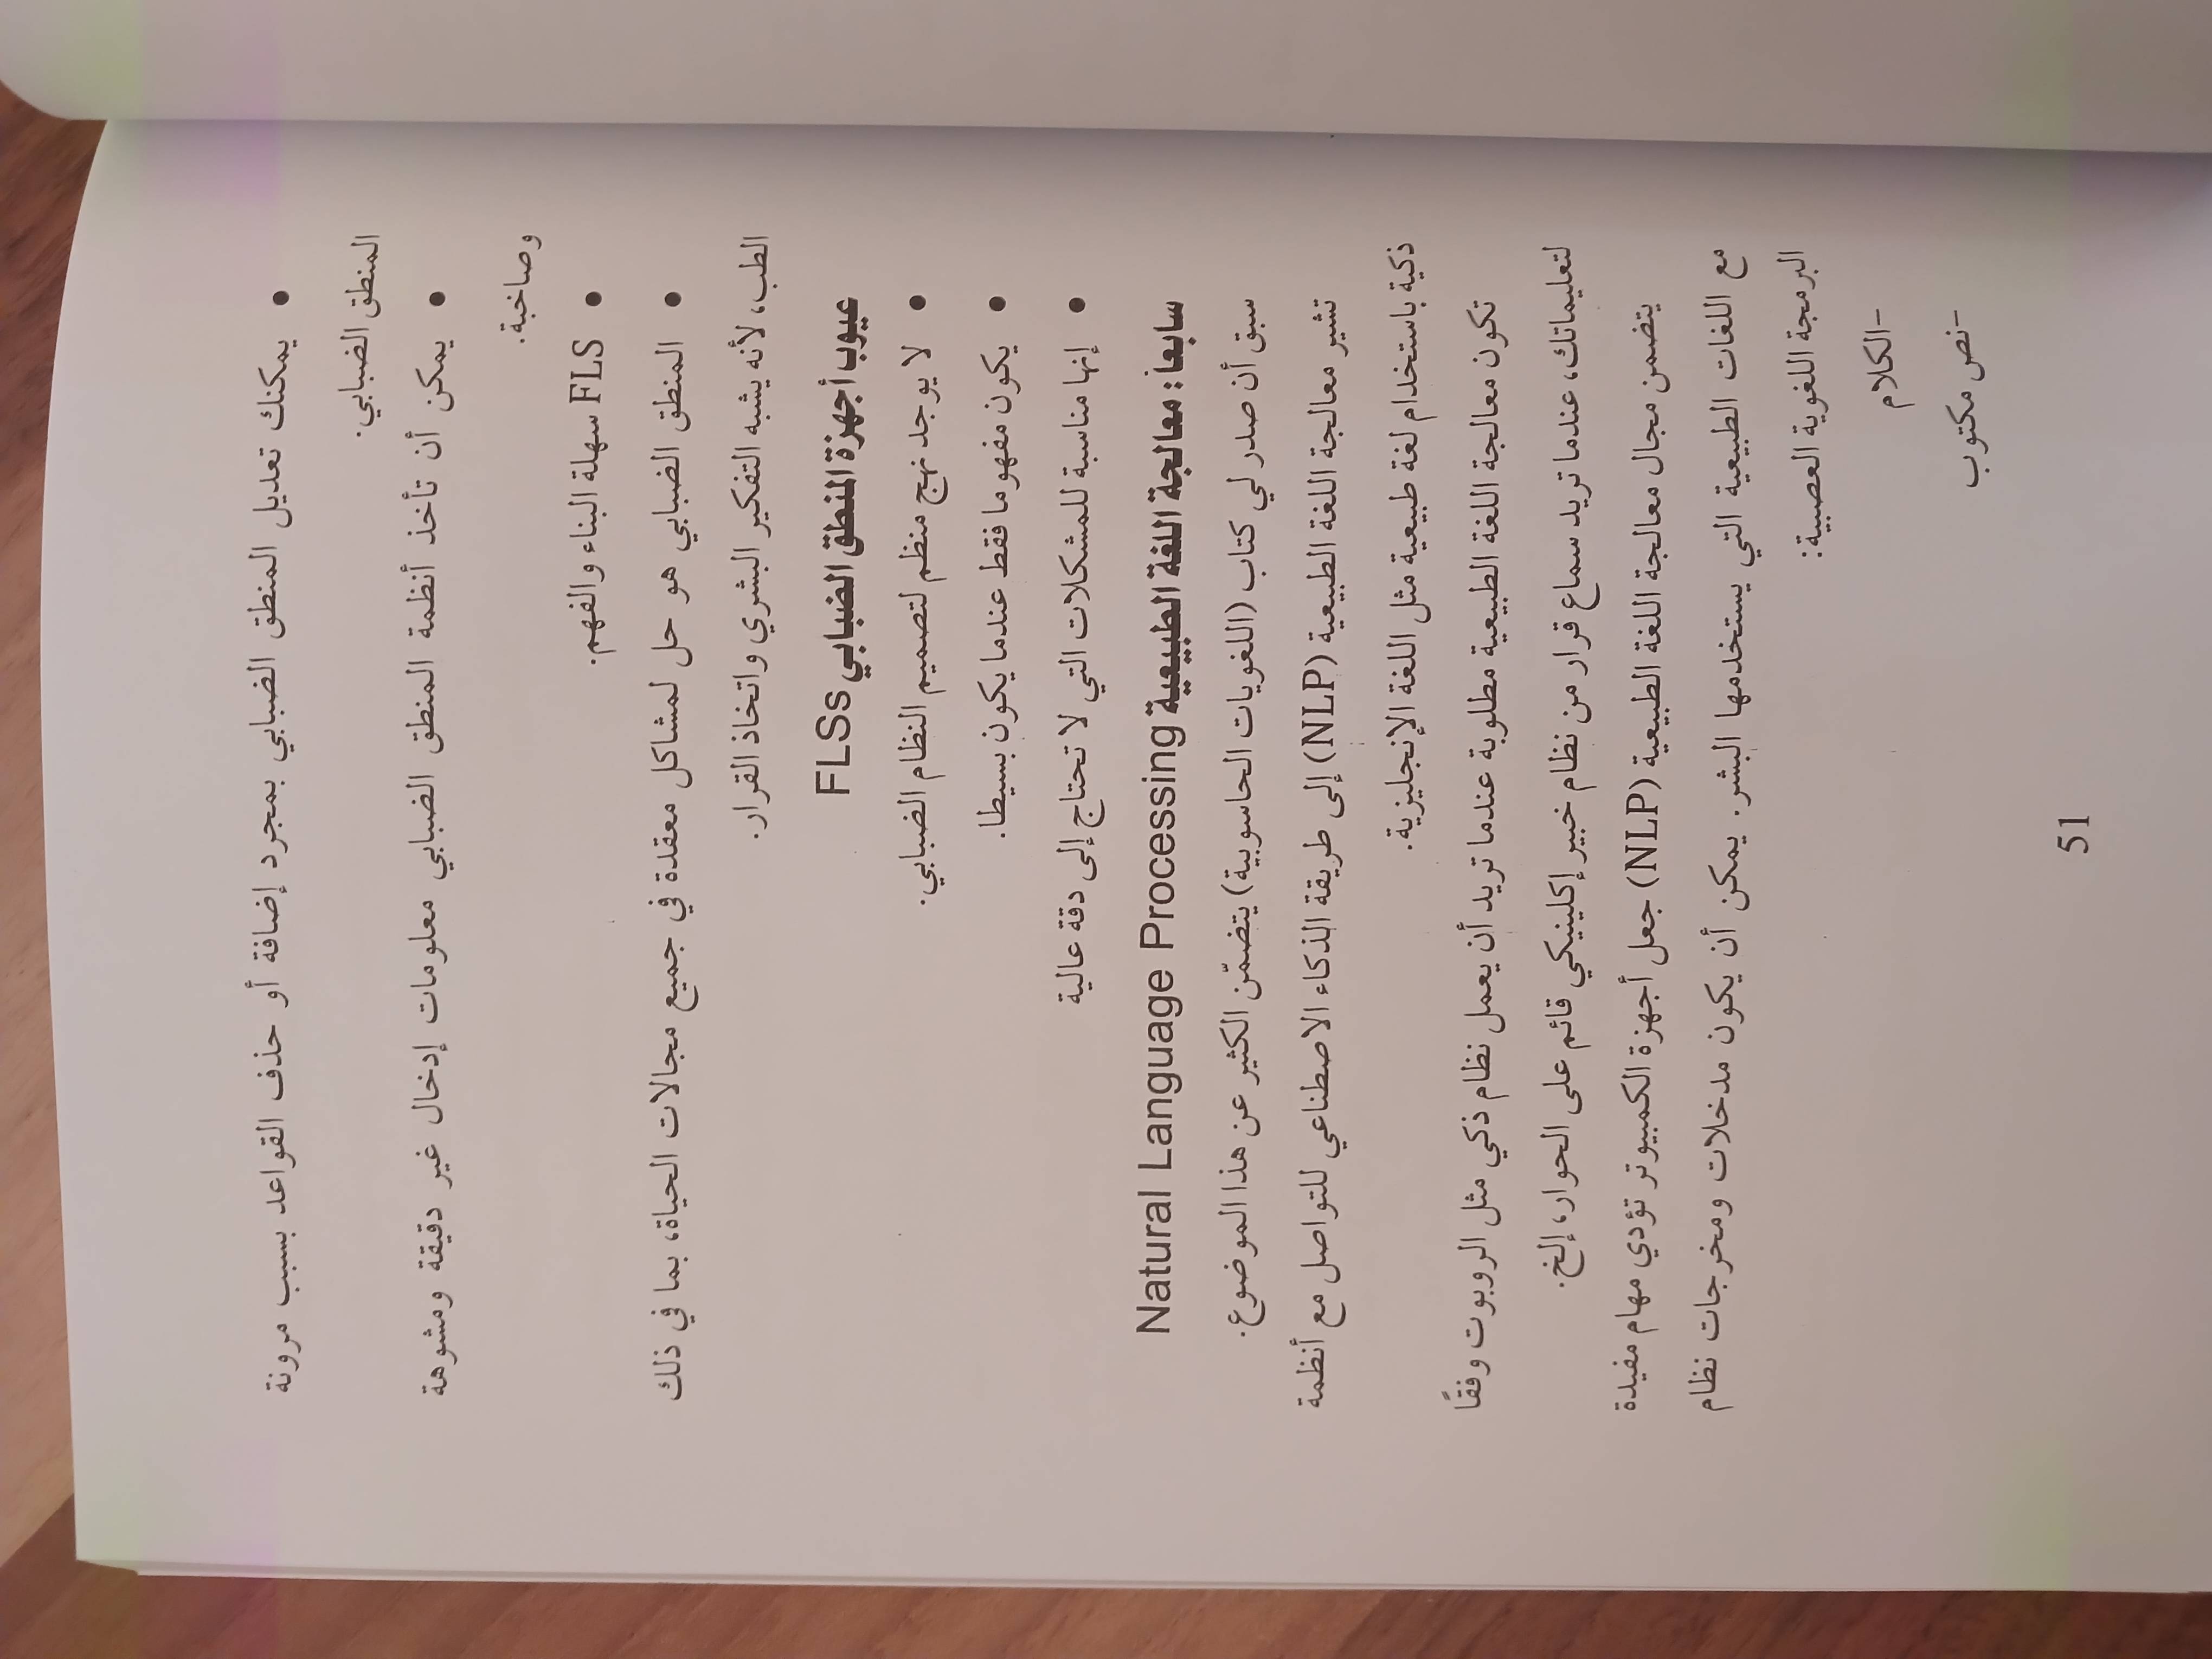 ● يمكنك تعديل المنطق الضبابي بمجرد إضافة أو حذف القواعد بسبب مرونة
المنطق الضبابي.
● يمكن أن تأخذ أنظمة المنطق الضبابي معلومات إدخال غير دقيقة ومشوهة
وصاخبة.
● FLS سهلة البناء والفهم.
● المنطق الضبابي هو حل لمشاكل معقدة في جميع مجالات الحياة، بما في ذلك
الطب، لأنه يشبه التفكير البشري واتخاذ القرار.
عيوب أجهزة المنطق الضبابي FLSs
● لا يوجد نهج منظم لتصميم النظام الضبابي.
● يكون مفهوما فقط عندما يكون بسيطا.
● إنها مناسبة للمشكلات التي لا تحتاج إلى دقة عالية
سابعاً: معالجة اللغة الطبيعية Natural Language Processing
سبق أن صدر لي كتاب (اللغويات الحاسوبية) يتضمّن الكثير عن هذا الموضوع.
تشير معالجة اللغة الطبيعية (NLP) إلى طريقة الذكاء الاصطناعي للتواصل مع أنظمة
ذكية باستخدام لغة طبيعية مثل اللغة الإنجليزية.
تكون معالجة اللغة الطبيعية مطلوبة عندما تريد أن يعمل نظام ذكي مثل الروبوت وفقًا
لتعليماتك، عندما تريد سماع قرار من نظام خبير إكلينيكي قائم على الحوار، إلخ.
يتضمن مجال معالجة اللغة الطبيعية (NLP) جعل أجهزة الكمبيوتر تؤدي مهام مفيدة
مع اللغات الطبيعية التي يستخدمها البشر. يمكن أن يكون مدخلات ومخرجات نظام
البرمجة اللغوية العصبية:
-الكلام
-نص مكتوب
51